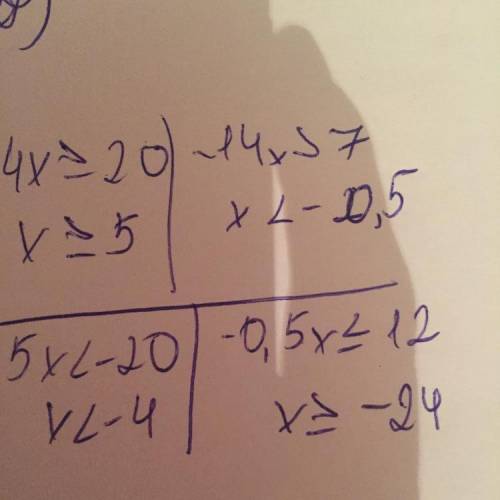 4x ≥ 20
x ≥ 5
-14x > 7
x < -0,5
5x < -20
x < -4
-0,5x ≤ 12
x ≥ -24